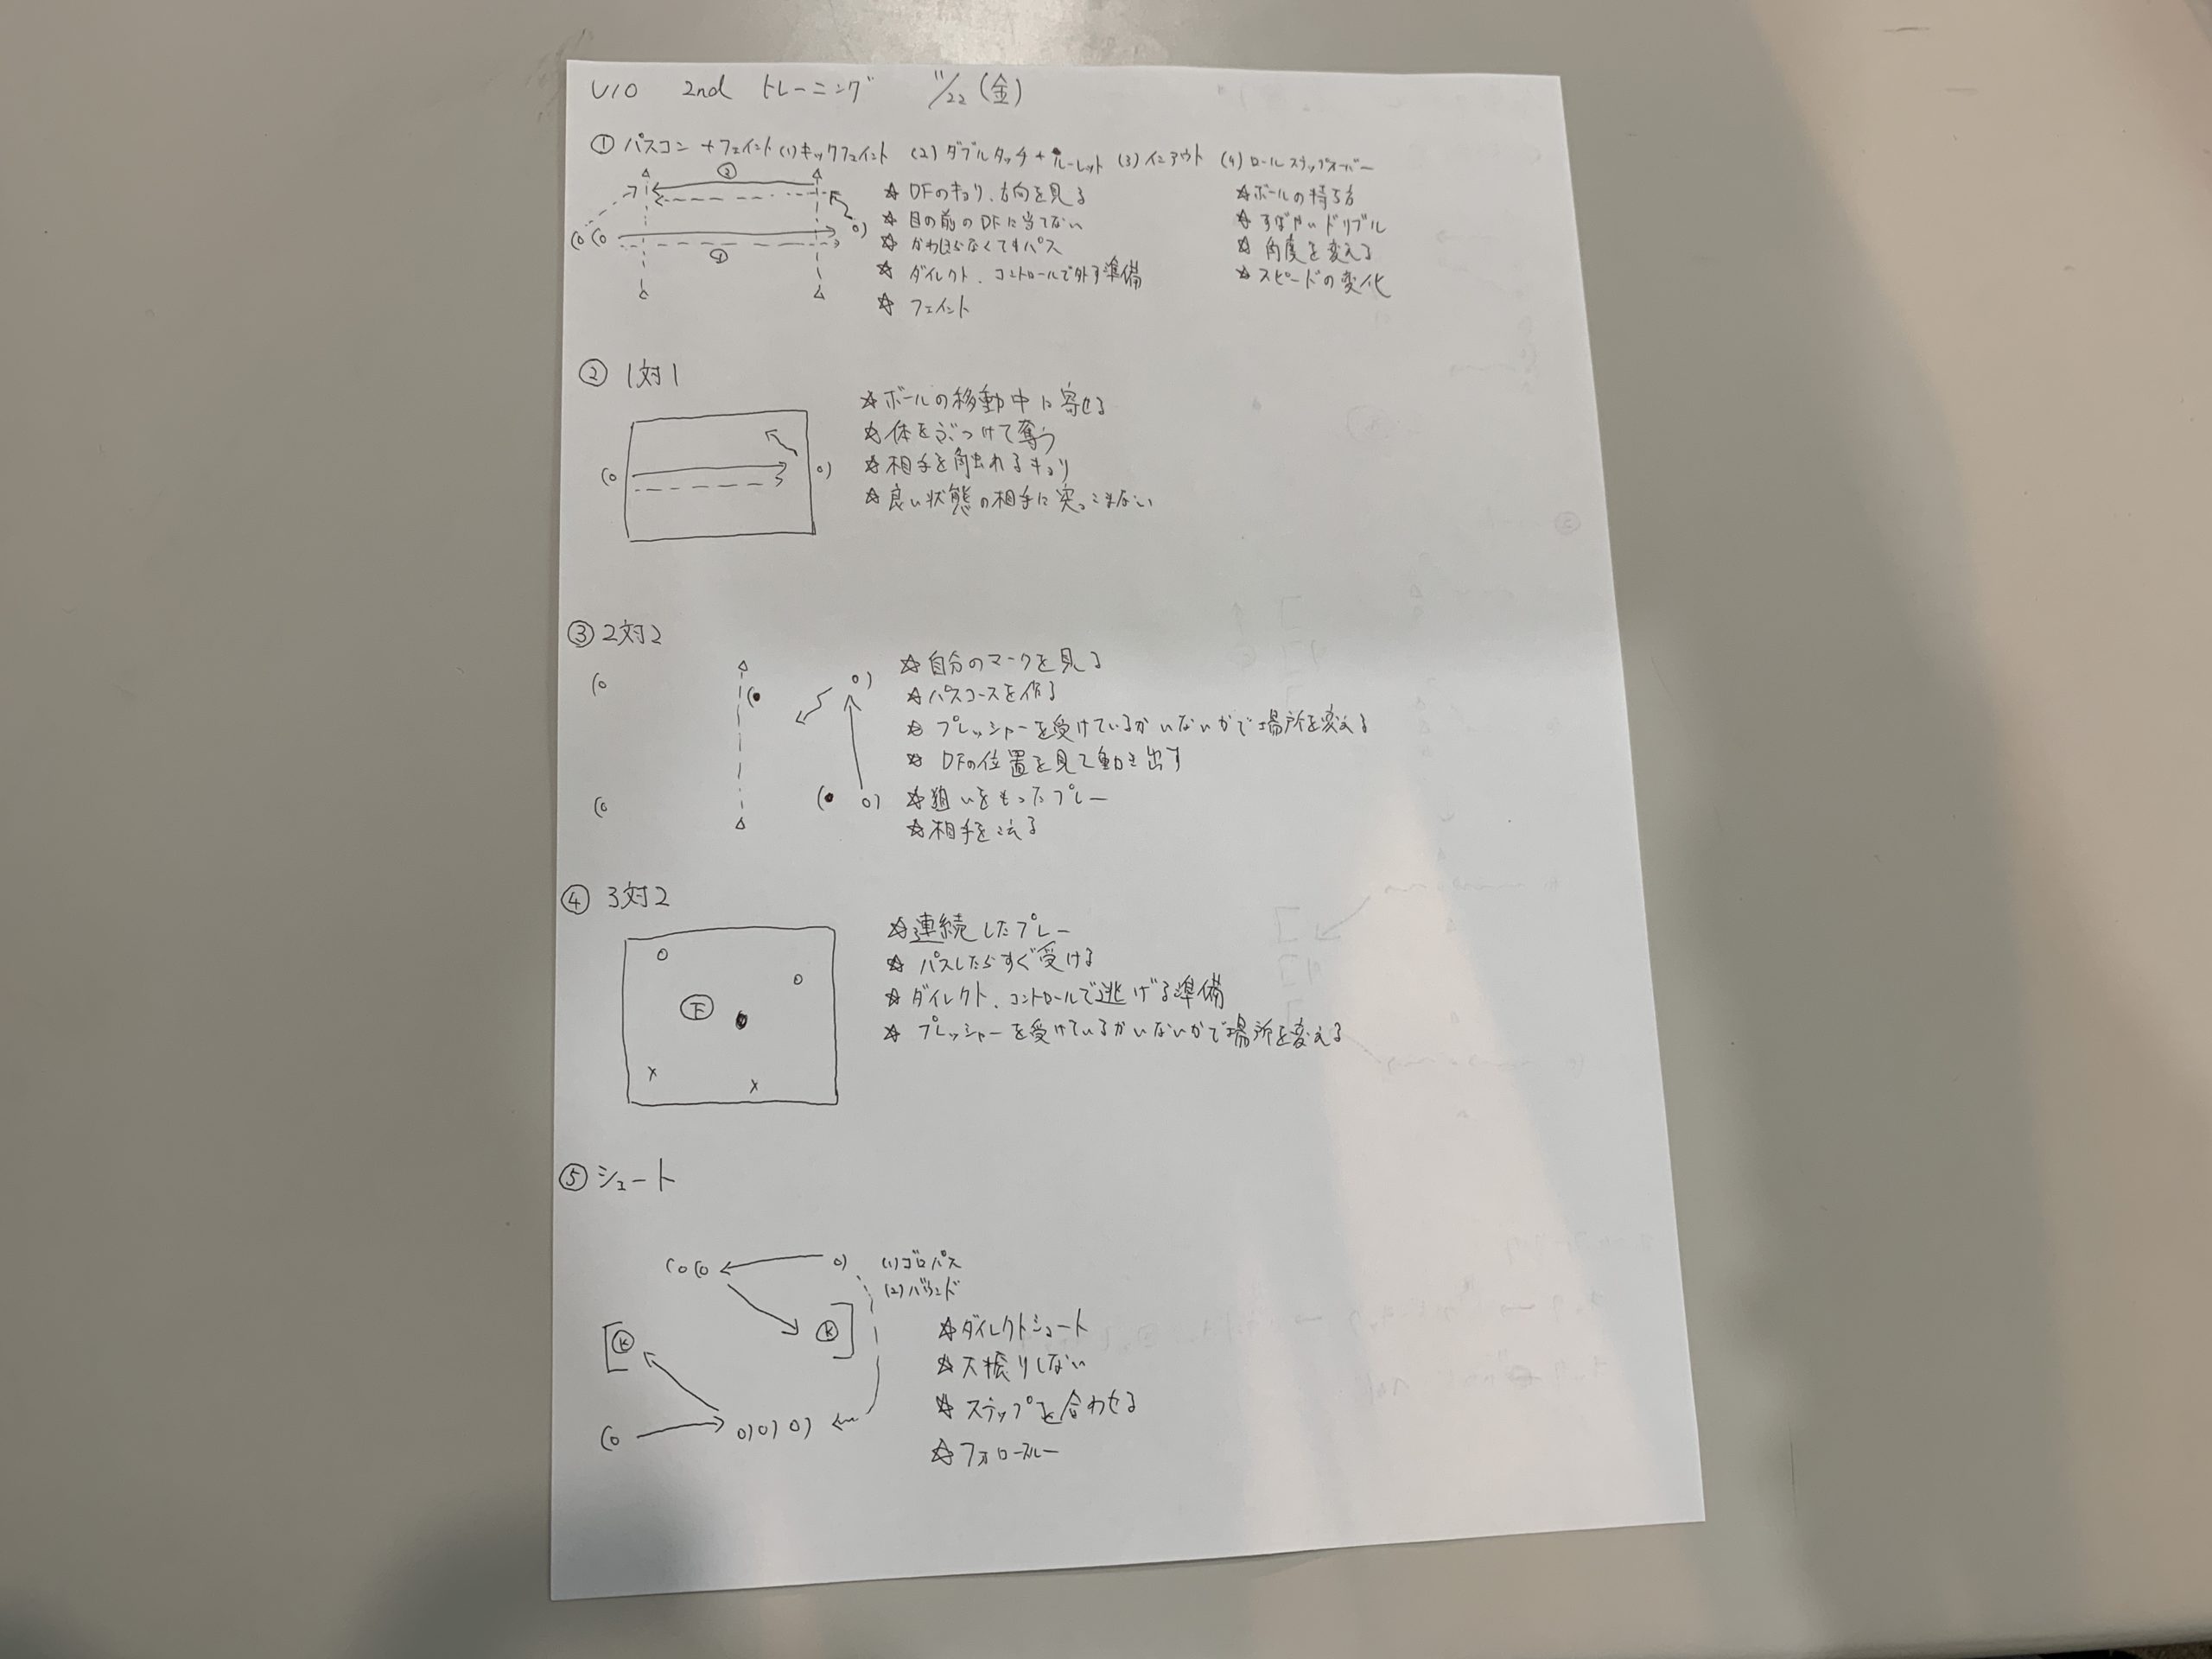 U10 2nd トレーニング 11/22(金)
① パスコン+フェイント (1)キックフェイント (2)ダブルタッチ+ルーレット (3)インアウト (4)ロールステップオーバー
②
①
☆ DFのキョリ、方向を見る
☆ 目の前のDFに当てない
☆ かわさなくてもパス
☆ ダイレクト、コントロールで外す準備
☆ フェイント
☆ボールの持ち方
☆ すばやいドリブル
☆ 角度を変える
☆ スピードの変化
② 1対1
☆ボールの移動中に寄せる
☆体をぶつけて奪う
☆相手を触れるキョリ
☆良い状態の相手に突っこまない
③ 2対2
☆ 自分のマークを見る
☆ パスコースを作る
☆ プレッシャーを受けているかいないかで場所を変える
☆ DFの位置を見て動き出す
☆狙いをもったプレー
☆相手をこえる
④ 3対2
F
☆連続したプレー
☆ パスしたらすぐ受ける
☆ダイレクト、コントロールで逃げる準備
☆ プレッシャーを受けているかいないかで場所を変える
⑤ シュート
(1)ゴロパス
(2)バウンド
K
K
☆ダイレクトシュート
☆大振りしない
☆ ステップを合わせる
☆フォロースルー